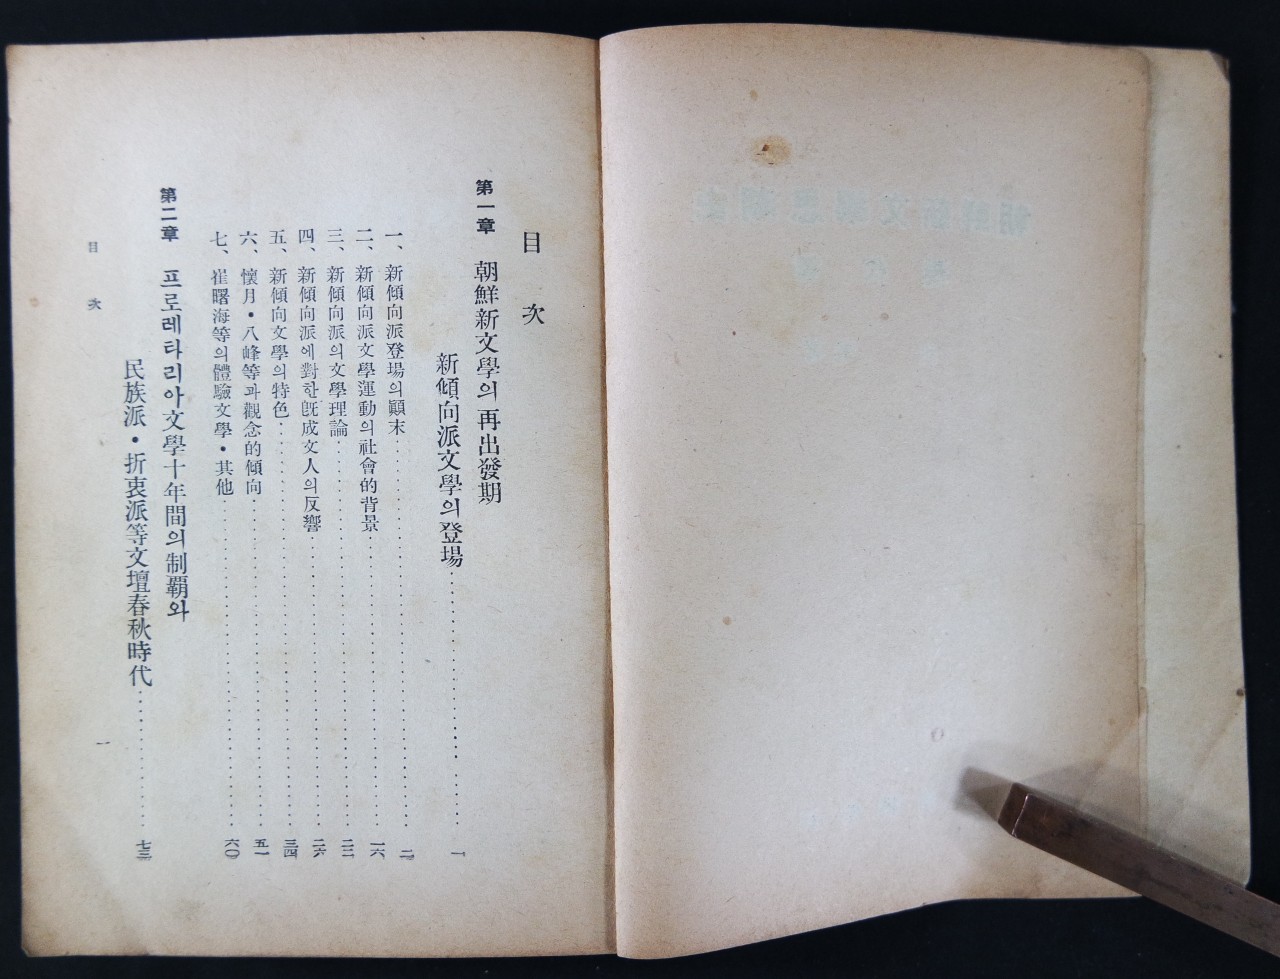 目次
第一章 朝鮮新文學의再出發期
新傾向派文學의登場 一
一、新傾向派登場의顚末 二
二、新傾向派文學運動의社會的背景 一六
三、新傾向派의文學理論 二二
四、新傾向派에對한旣成文人의反響 二六
五、新傾向文學의特色 三四
六、懷月・八峰等과觀念的傾向 五一
七、崔曙海等의體驗文學・其他 六〇
第二章 프로레타리아文學十年間의制覇와
民族派・折衷派等文壇春秋時代 七三
目次
一